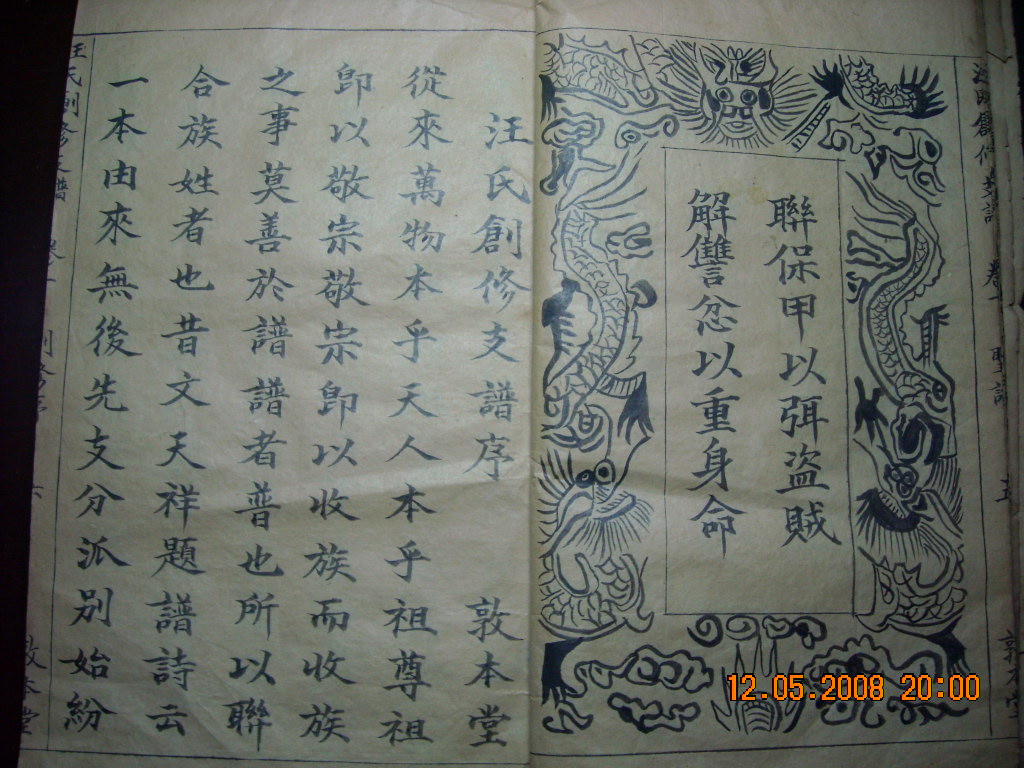 聯保甲以弭盜賊
解讐忿以重身命
汪氏創修支譜序 敦本堂
從來萬物本乎天人本乎祖尊祖
卽以敬宗敬宗卽以收族而收族
之事莫善於譜譜者普也所以聯
合族姓者也昔文天祥題譜詩云
一本由來無後先支分派別始紛
汪氏創修支譜
敦本堂
12.05.2008 20:00